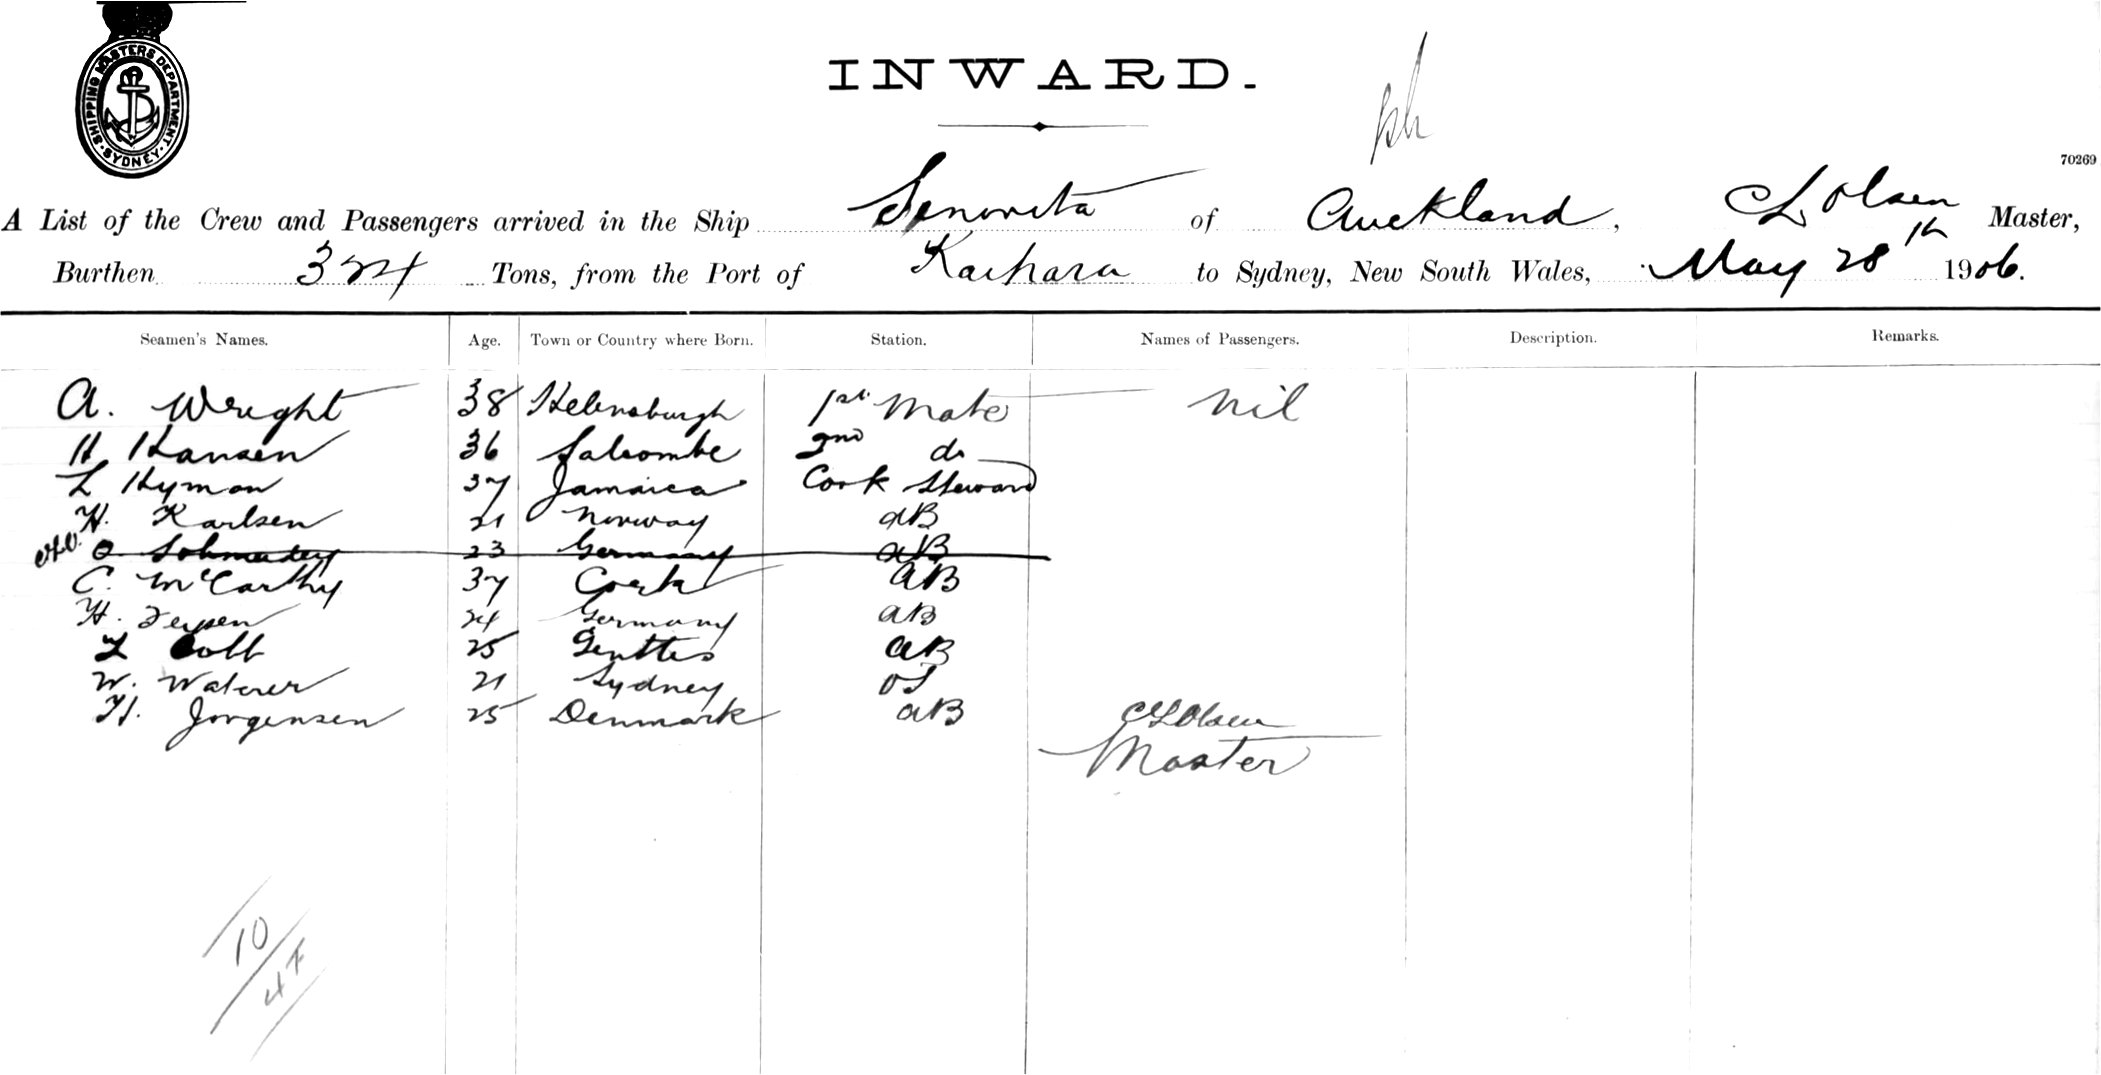 SHIPPING MASTERS DEPARTMENT. SYDNEY.
INWARD.
70269
A List of the Crew and Passengers arrived in the Ship Senorita of Auckland, C L Olsen Master,
Burthen 324 Tons, from the Port of Kaipara to Sydney, New South Wales, May 28th 1906.
Seamen's Names. Age. Town or Country where Born. Station. Names of Passengers. Description. Remarks.
A. Wright 38 Helensburgh 1st Mate Nil
H Hansen 36 Salcombe 2nd do
L Hyman 37 Jamaica Cook Steward
H. Karlsen 21 Norway AB
O. 23 Germany AB
C. McCarthy 37 Cork AB
H. 24 Germany AB
L Cobb 25 AB
W. Waterer 21 Sydney OS
H. Jorgensen 25 Denmark AB
C L Olsen
Master
10
4 F